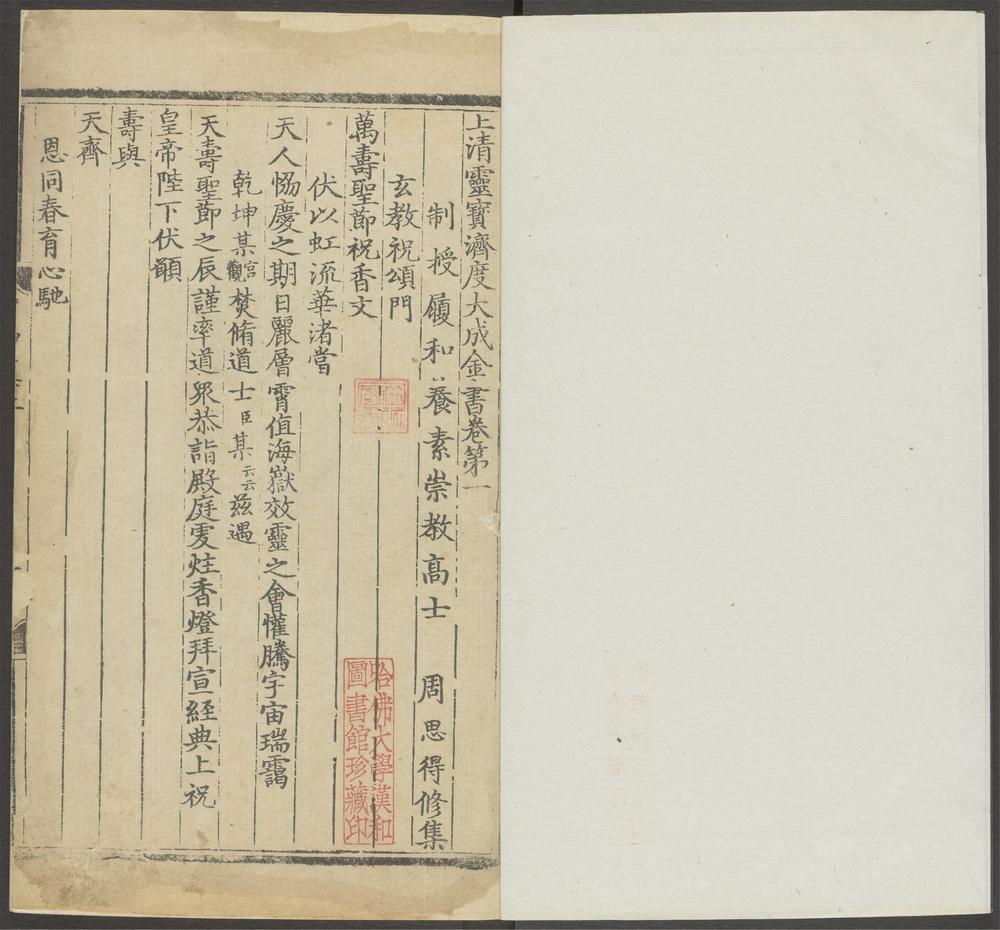 上清靈寶濟度大成金書卷第一
制授履和養素崇教高士 周思得修集
玄教祝頌門
萬壽聖節祝香文
伏以虹流華渚當
天人恊慶之期日麗層霄值海嶽效靈之會懽騰宇宙瑞靄
乾坤某宮觀焚脩道士臣某云云茲遇
天壽聖節之辰謹率道眾恭詣殿庭虔炷香燈拜宣經典上祝
皇帝陛下伏願
壽與
天齊
恩同春育心馳
哈佛大學漢和
圖書館珍藏印